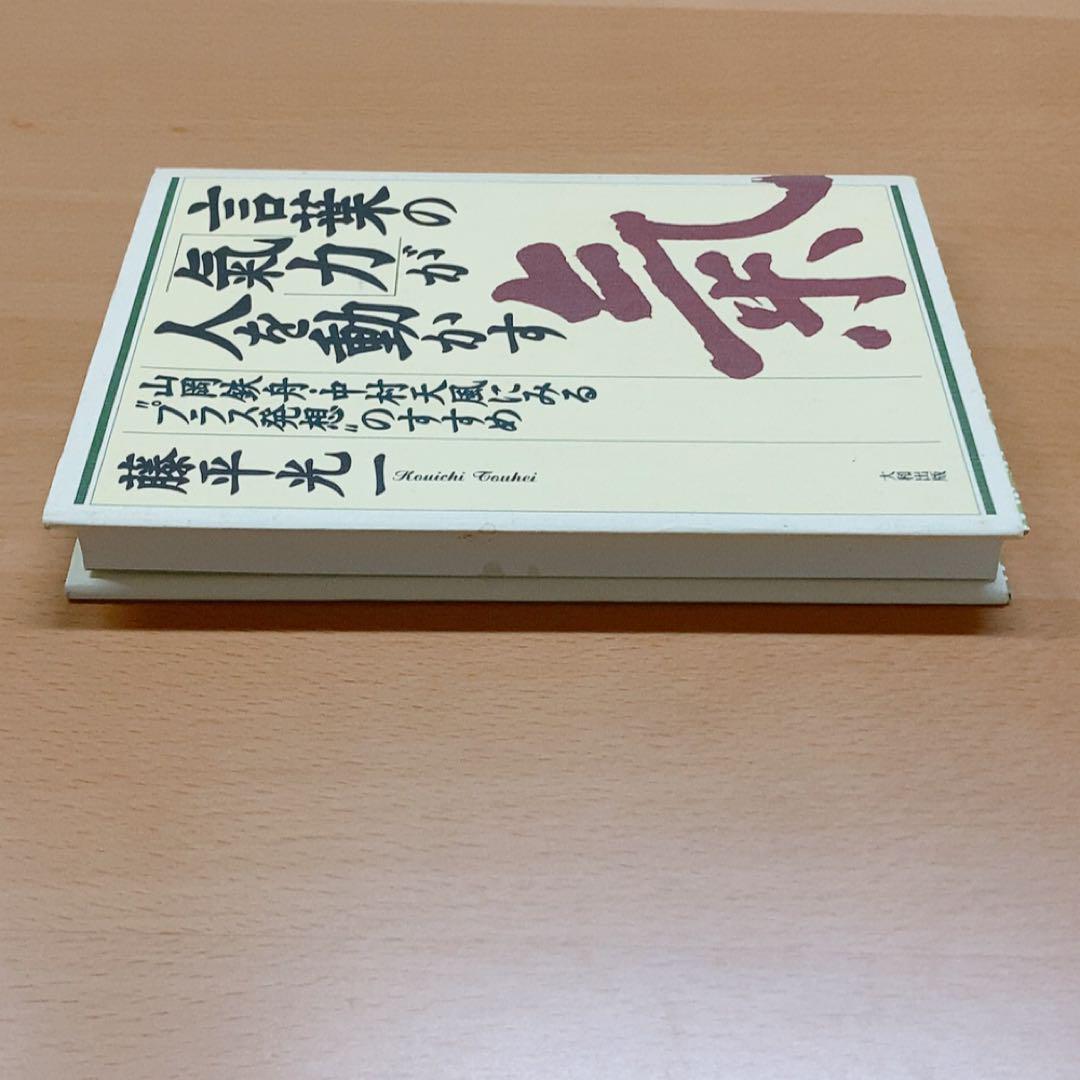 氣
言葉の
「氣力」が
人を動かす
山岡鉄舟・中村天風にみる
“プラス発想”のすすめ
藤平光一
Kouichi Touhei
大和出版